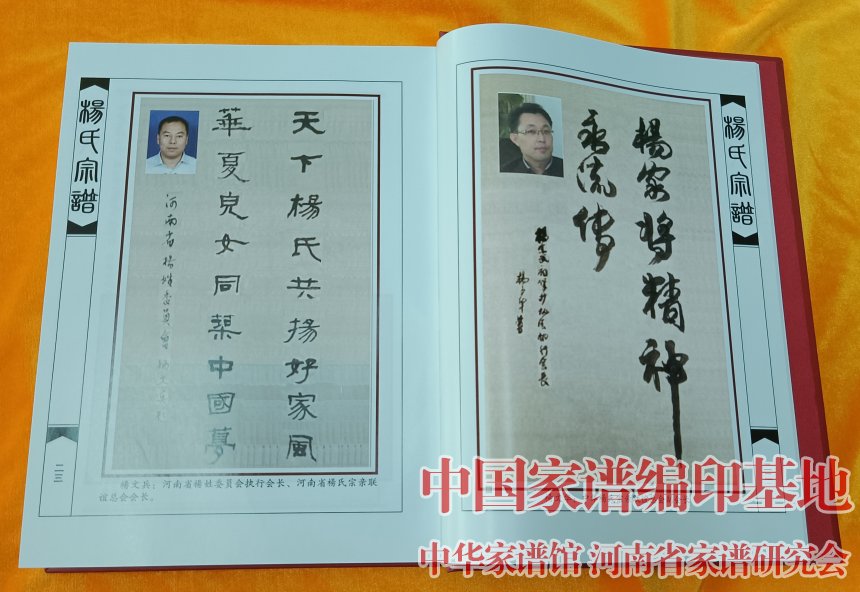 楊氏宗譜
天下楊氏共揚好家風
華夏兒女同築中國夢
河南省楊姓委員會
二三
楊文兵：河南省楊姓委員会執行会长、河南省楊氏宗亲联
谊总会会长。
楊氏宗譜
楊家将精神
永流傳
中国家谱编印基地
中华家谱馆 河南省家谱研究会